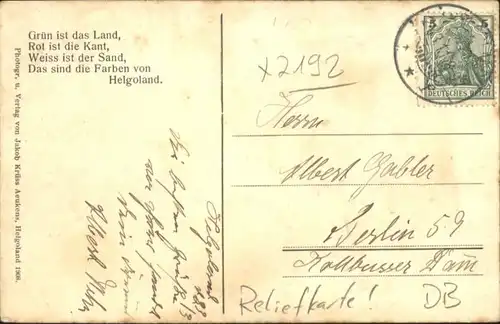 Grün ist das Land,
Rot ist die Kant,
Weiss ist der Sand,
Das sind die Farben von
Helgoland.
Photogr. u. Verlag von Jakob Krüss Aeukens, Helgoland 1909.
Helgoland
Die besten Grüße
Albert
x2192
5 5
DEUTSCHES REICH
Herrn
Albert Gabler
Berlin 59
Kottbusser Dam
Reliefkarte!
DB